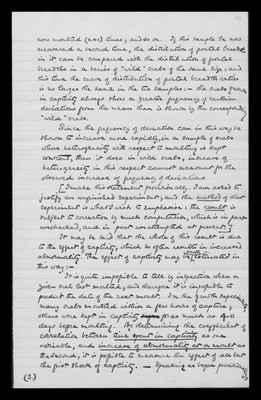 now moulted (n+1) times, and so on. If this sample be now
measured a second time, the distribution of frontal breadths
in it can be compared with the distribution of frontal
breadths in a series of "wild" crabs of the same size: and
this time the curve of distribution of frontal breadth ratios
is no longer the same in the two samples: — the crabs grown
in captivity always show a greater frequency of certain
deviations from the mean than is shown by the corresponding
"wild" crabs.
Since the frequency of deviation can in this way be
shown to increase more rapidly, in a sample of crabs
whose heterogeneity with respect to moulting is kept
constant, than it does in wild crabs, increase of
heterogeneity in this respect cannot account for the
observed increase of frequency of deviations.
[I make this statement provisionally. I am asked to
justify an unfinished experiment; and the method of that
experiment is what I wish to emphasise: the result is
subject to correction by much computation, which is in part
unchecked, and in part unattempted at present.]
It may be said that the whole of this result is due
to the effect of captivity, which so often results in increased
abnormality. The effect of captivity may be estimated in
this way: —
It is quite impossible to tell by inspection when a
given crab last moulted, and therefore it is impossible to
predict the date of the next moult. In the fourth experiment
many crabs moulted within a few hours of capture;
others were kept in captivity for as much as 40
days before moulting. By determining the coefficient of
correlation between time spent in captivity as one
variable, and increase of abnormality at a moult as
the second, it is possible to measure the effect of all but
the first shock of captivity. — Speaking as before provisionally,
(3.)